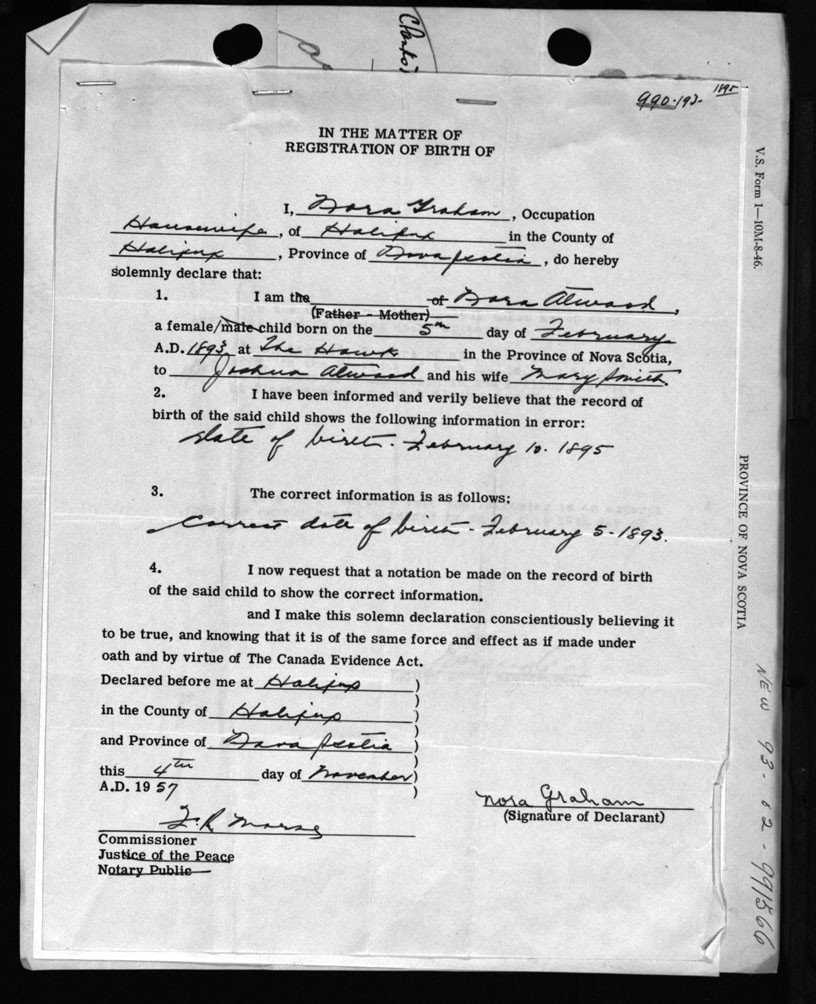 990-193-
1895
IN THE MATTER OF
REGISTRATION OF BIRTH OF
I, Nora Graham, Occupation
Housewife, of Halifax in the County of
Halifax, Province of Nova Scotia, do hereby
solemnly declare that:
1. I am the of Nora Atwood,
(Father - Mother)
a female/male child born on the 5th day of February
A.D. 1893 at The Hawk in the Province of Nova Scotia,
to Joshua Atwood and his wife Mary Smith.
2. I have been informed and verily believe that the record of
birth of the said child shows the following information in error:
date of birth - February 10. 1895
3. The correct information is as follows:
Correct date of birth - February 5 - 1893.
4. I now request that a notation be made on the record of birth
of the said child to show the correct information.
and I make this solemn declaration conscientiously believing it
to be true, and knowing that it is of the same force and effect as if made under
oath and by virtue of The Canada Evidence Act.
Declared before me at Halifax )
in the County of Halifax )
and Province of Nova Scotia )
this 4th day of November )
A.D. 1957 )
Nora Graham
(Signature of Declarant)
Commissioner
Justice of the Peace
Notary Public
V.S. Form 1—10M-8-46.
PROVINCE OF NOVA SCOTIA
NEW 93-02-991566